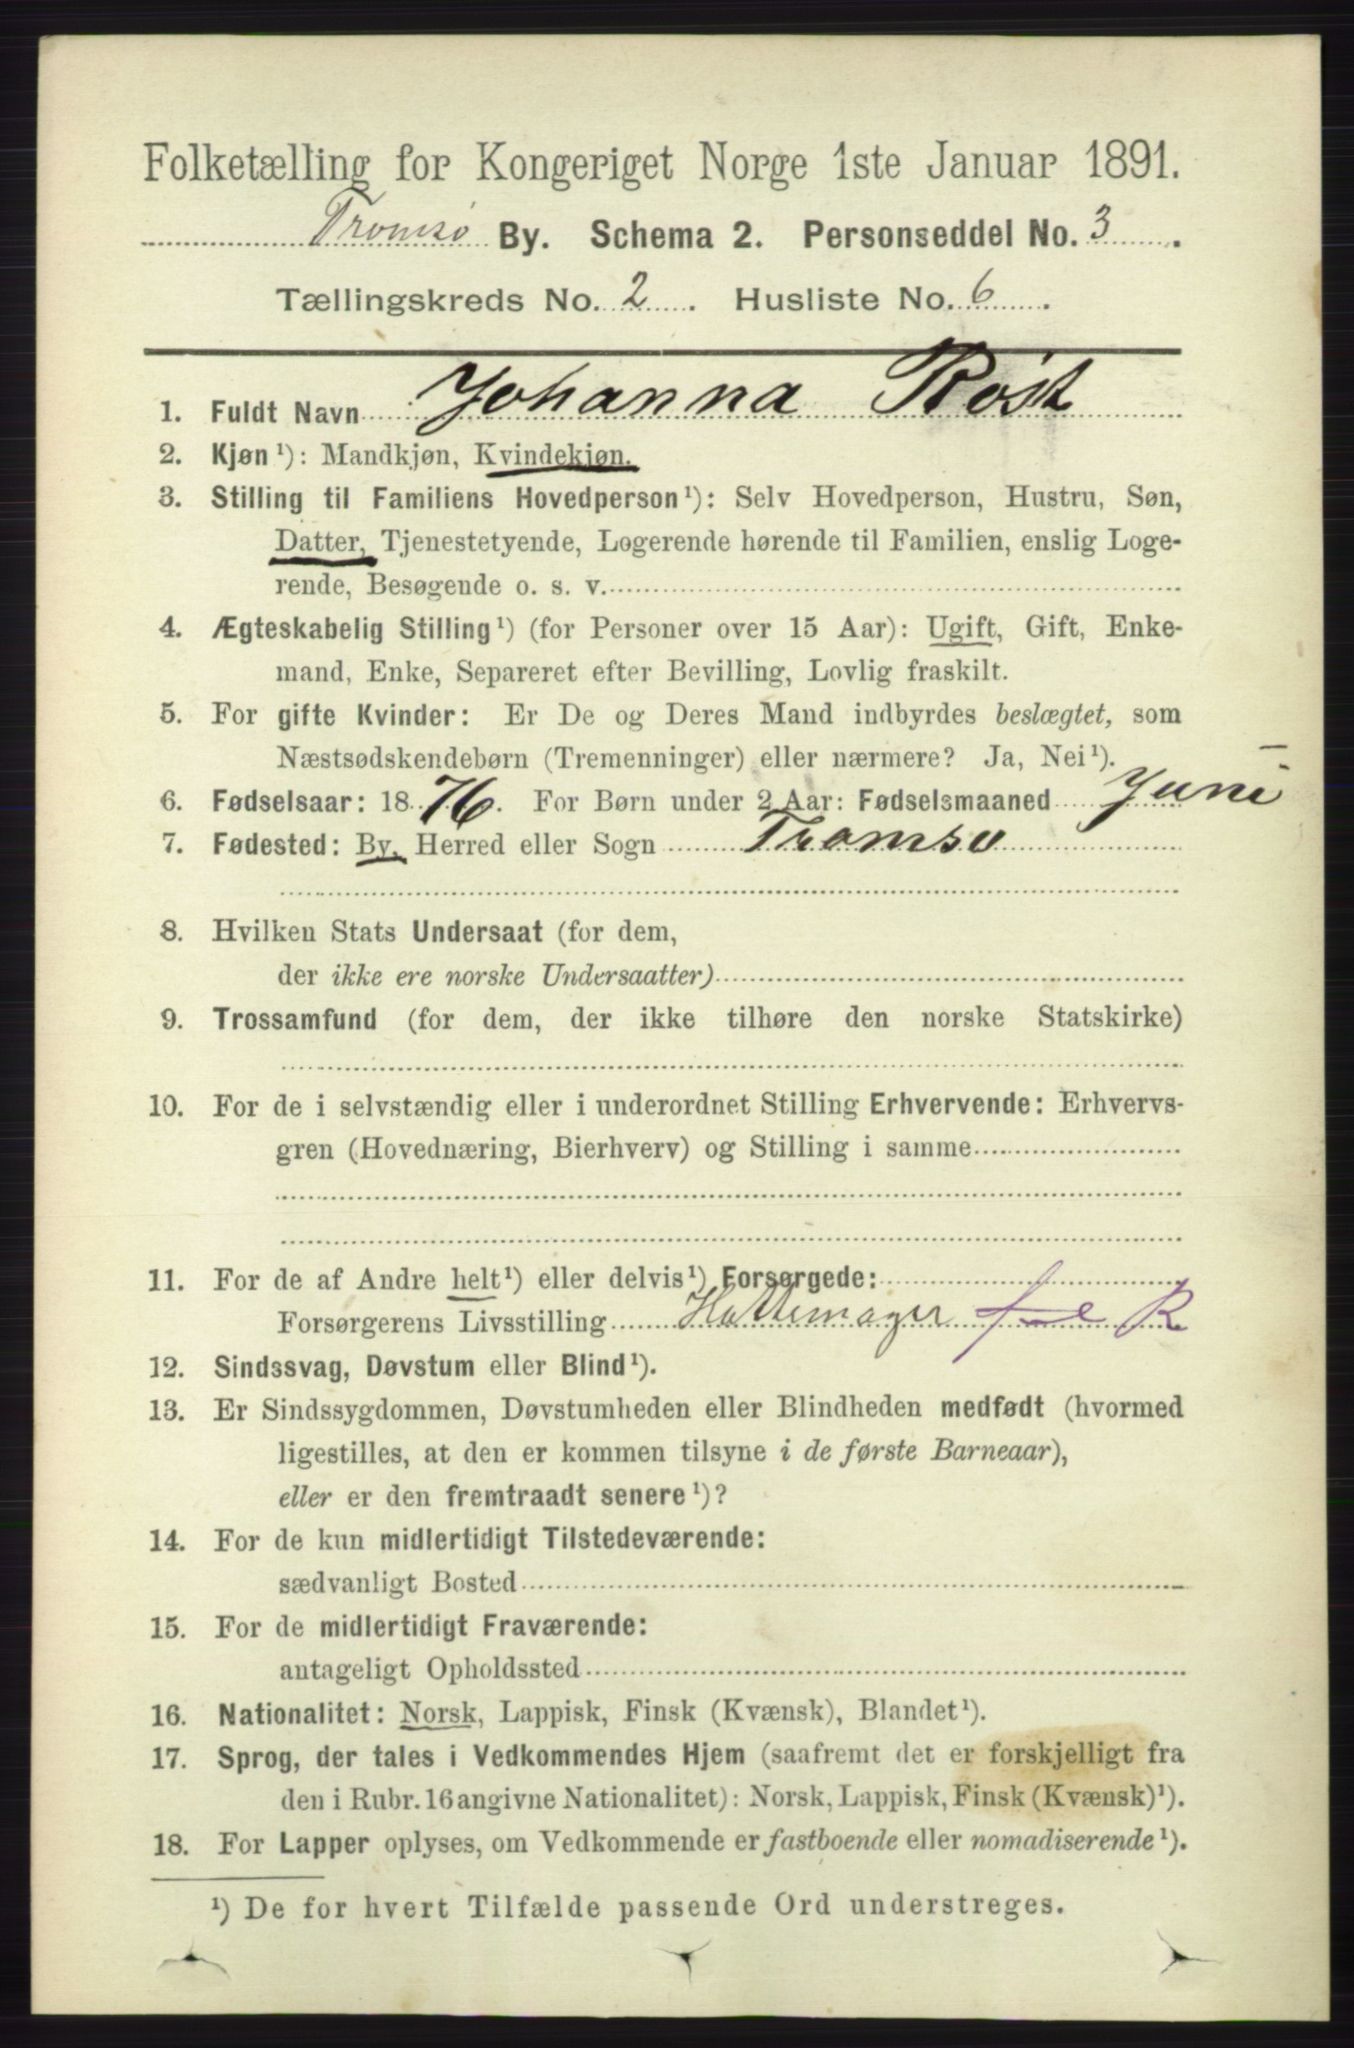 Folketælling for Kongeriget Norge 1ste Januar 1891.
Tromsø By. Schema 2. Personseddel No. 3.
Tællingskreds No. 2. Husliste No. 6.
1. Fuldt Navn Johanna Röst
2. Kjøn¹): Mandkjøn, Kvindekjøn.
3. Stilling til Familiens Hovedperson¹): Selv Hovedperson, Hustru, Søn,
Datter, Tjenestetyende, Logerende hørende til Familien, enslig Loge-
rende, Besøgende o. s. v.
4. Ægteskabelig Stilling¹) (for Personer over 15 Aar): Ugift, Gift, Enke-
mand, Enke, Separeret efter Bevilling, Lovlig fraskilt.
5. For gifte Kvinder: Er De og Deres Mand indbyrdes beslægtet, som
Næstsødskendebørn (Tremenninger) eller nærmere? Ja, Nei¹).
6. Fødselsaar: 1876. For Børn under 2 Aar: Fødselsmaaned Juni
7. Fødested: By, Herred eller Sogn Tromsø
8. Hvilken Stats Undersaat (for dem,
der ikke ere norske Undersaatter)
9. Trossamfund (for dem, der ikke tilhøre den norske Statskirke)
10. For de i selvstændig eller i underordnet Stilling Erhvervende: Erhvervs-
gren (Hovednæring, Bierhverv) og Stilling i samme
11. For de af Andre helt¹) eller delvis¹) Forsørgede:
Forsørgerens Livsstilling Hattemager R
12. Sindssvag, Døvstum eller Blind¹).
13. Er Sindssygdommen, Døvstumheden eller Blindheden medfødt (hvormed
ligestilles, at den er kommen tilsyne i de første Barneaar),
eller er den fremtraadt senere¹)?
14. For de kun midlertidigt Tilstedeværende:
sædvanligt Bosted
15. For de midlertidigt Fraværende:
antageligt Opholdssted
16. Nationalitet: Norsk, Lappisk, Finsk (Kvænsk), Blandet¹).
17. Sprog, der tales i Vedkommendes Hjem (saafremt det er forskjelligt fra
den i Rubr. 16 angivne Nationalitet): Norsk, Lappisk, Finsk (Kvænsk)¹).
18. For Lapper oplyses, om Vedkommende er fastboende eller nomadiserende¹).
¹) De for hvert Tilfælde passende Ord understreges.